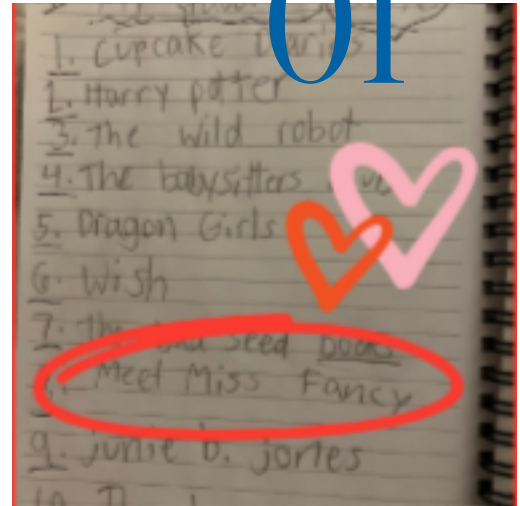 of
1. Cupcake Diaries
2. Harry potter
3. The wild robot
4. The babysitters
5. Dragon Girls
6. Wish
7. The bad seed books
Meet Miss Fancy
9. junie b. jones
10.